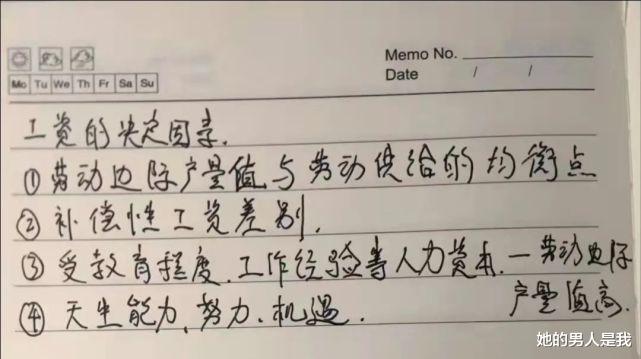 Memo No.
Mo Tu We Th Fr Sa Su
Date / /
工资的决定因素.
①劳动边际产量值与劳动供给的均衡点
②补偿性工资差别.
③受教育程度.工作经验等人力资本.—劳动边际
产量值高.
④天生能力.努力.机遇.
她的男人是我